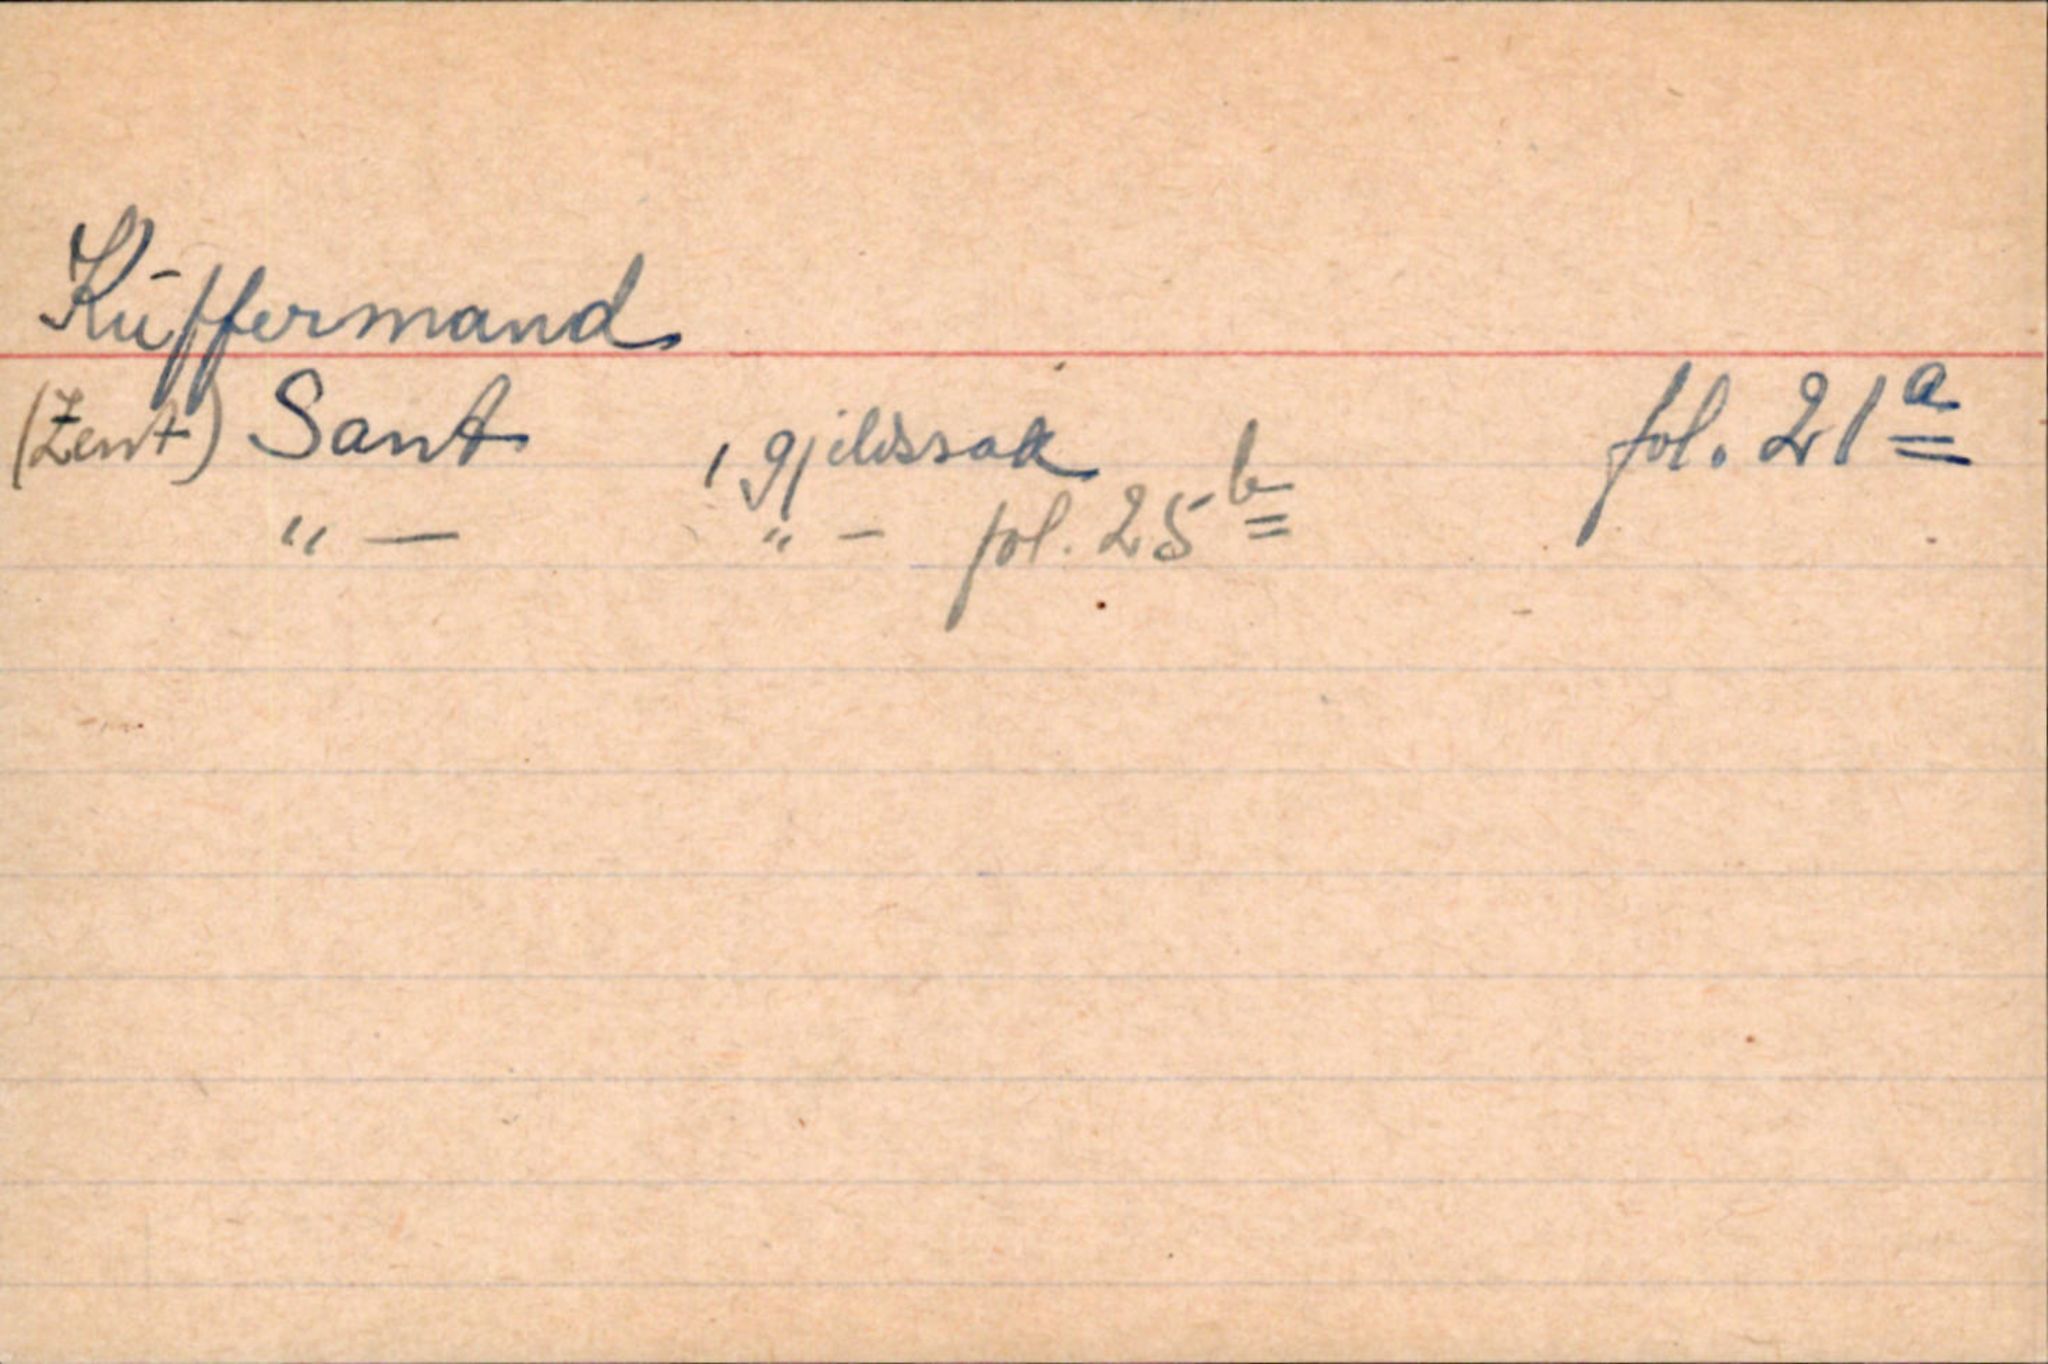 Küffermand
(Zent) Sant , gjeldssak fol. 21a
" — " — fol. 25b